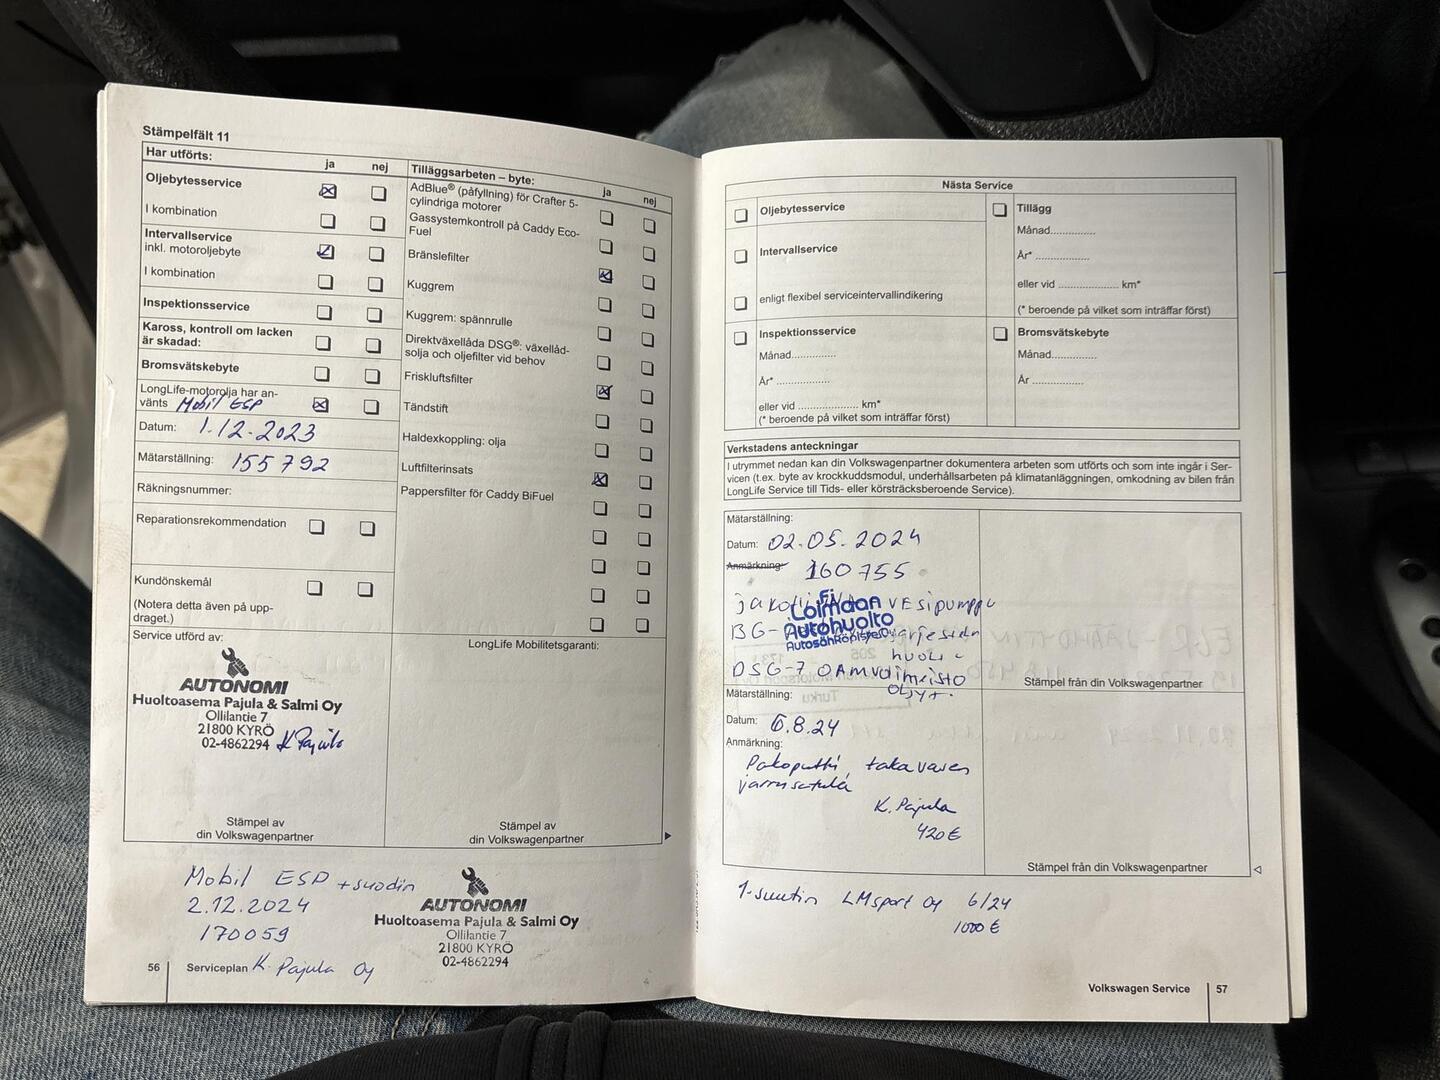 Stämpelfält 11
Har utförts: ja nej
Oljebytesservice
I kombination
Intervallservice
inkl. motoroljebyte
I kombination
Inspektionsservice
Kaross, kontroll om lacken
är skadad:
Bromsvätskebyte
LongLife-motorolja har an-
vänts Mobil ESP
Datum: 1.12.2023
Mätarställning: 155792
Räkningsnummer:
Reparationsrekommendation
Kundönskemål
(Notera detta även på upp-
draget.)
Service utförd av:
AUTONOMI
Huoltoasema Pajula & Salmi Oy
Ollilantie 7
21800 KYRÖ
02-4862294 K Pajula
Stämpel av
din Volkswagenpartner
Tilläggsarbeten – byte: ja nej
AdBlue® (påfyllning) för Crafter 5-
cylindriga motorer
Gassystemkontroll på Caddy Eco-
Fuel
Bränslefilter
Kuggrem
Kuggrem: spännrulle
Direktväxellåda DSG®: växellåd-
solja och oljefilter vid behov
Friskluftsfilter
Tändstift
Haldexkoppling: olja
Luftfilterinsats
Pappersfilter för Caddy BiFuel
LongLife Mobilitetsgaranti:
Stämpel av
din Volkswagenpartner
Mobil ESP + suodin
2.12.2024
170059
K. Pajula Oy
AUTONOMI
Huoltoasema Pajula & Salmi Oy
Ollilantie 7
21800 KYRÖ
02-4862294
56 Serviceplan
Nästa Service
Oljebytesservice
Intervallservice
enligt flexibel serviceintervallindikering
Tillägg
Månad..............
År* ..................
eller vid .................... km*
(* beroende på vilket som inträffar först)
Inspektionsservice
Månad..............
År* ..................
eller vid .................... km*
(* beroende på vilket som inträffar först)
Bromsvätskebyte
Månad..............
År ..................
Verkstadens anteckningar
I utrymmet nedan kan din Volkswagenpartner dokumentera arbeten som utförts och som inte ingår i Ser-
vicen (t.ex. byte av krockkuddsmodul, underhållsarbeten på klimatanläggningen, omkodning av bilen från
LongLife Service till Tids- eller körsträcksberoende Service).
Mätarställning:
Datum: 02.05.2024
Anmärkning: 160755
VESipumppu
Loimaan
Autohuolto
BG-
huolto
DSG-7
Stämpel från din Volkswagenpartner
Mätarställning:
Datum: 6.8.24
Anmärkning:
Pakoputki, taka vasen
jarrusatula
K. Pajula
420€
Stämpel från din Volkswagenpartner
1-suutin LMsport Oy 6/24
1000€
Volkswagen Service 57